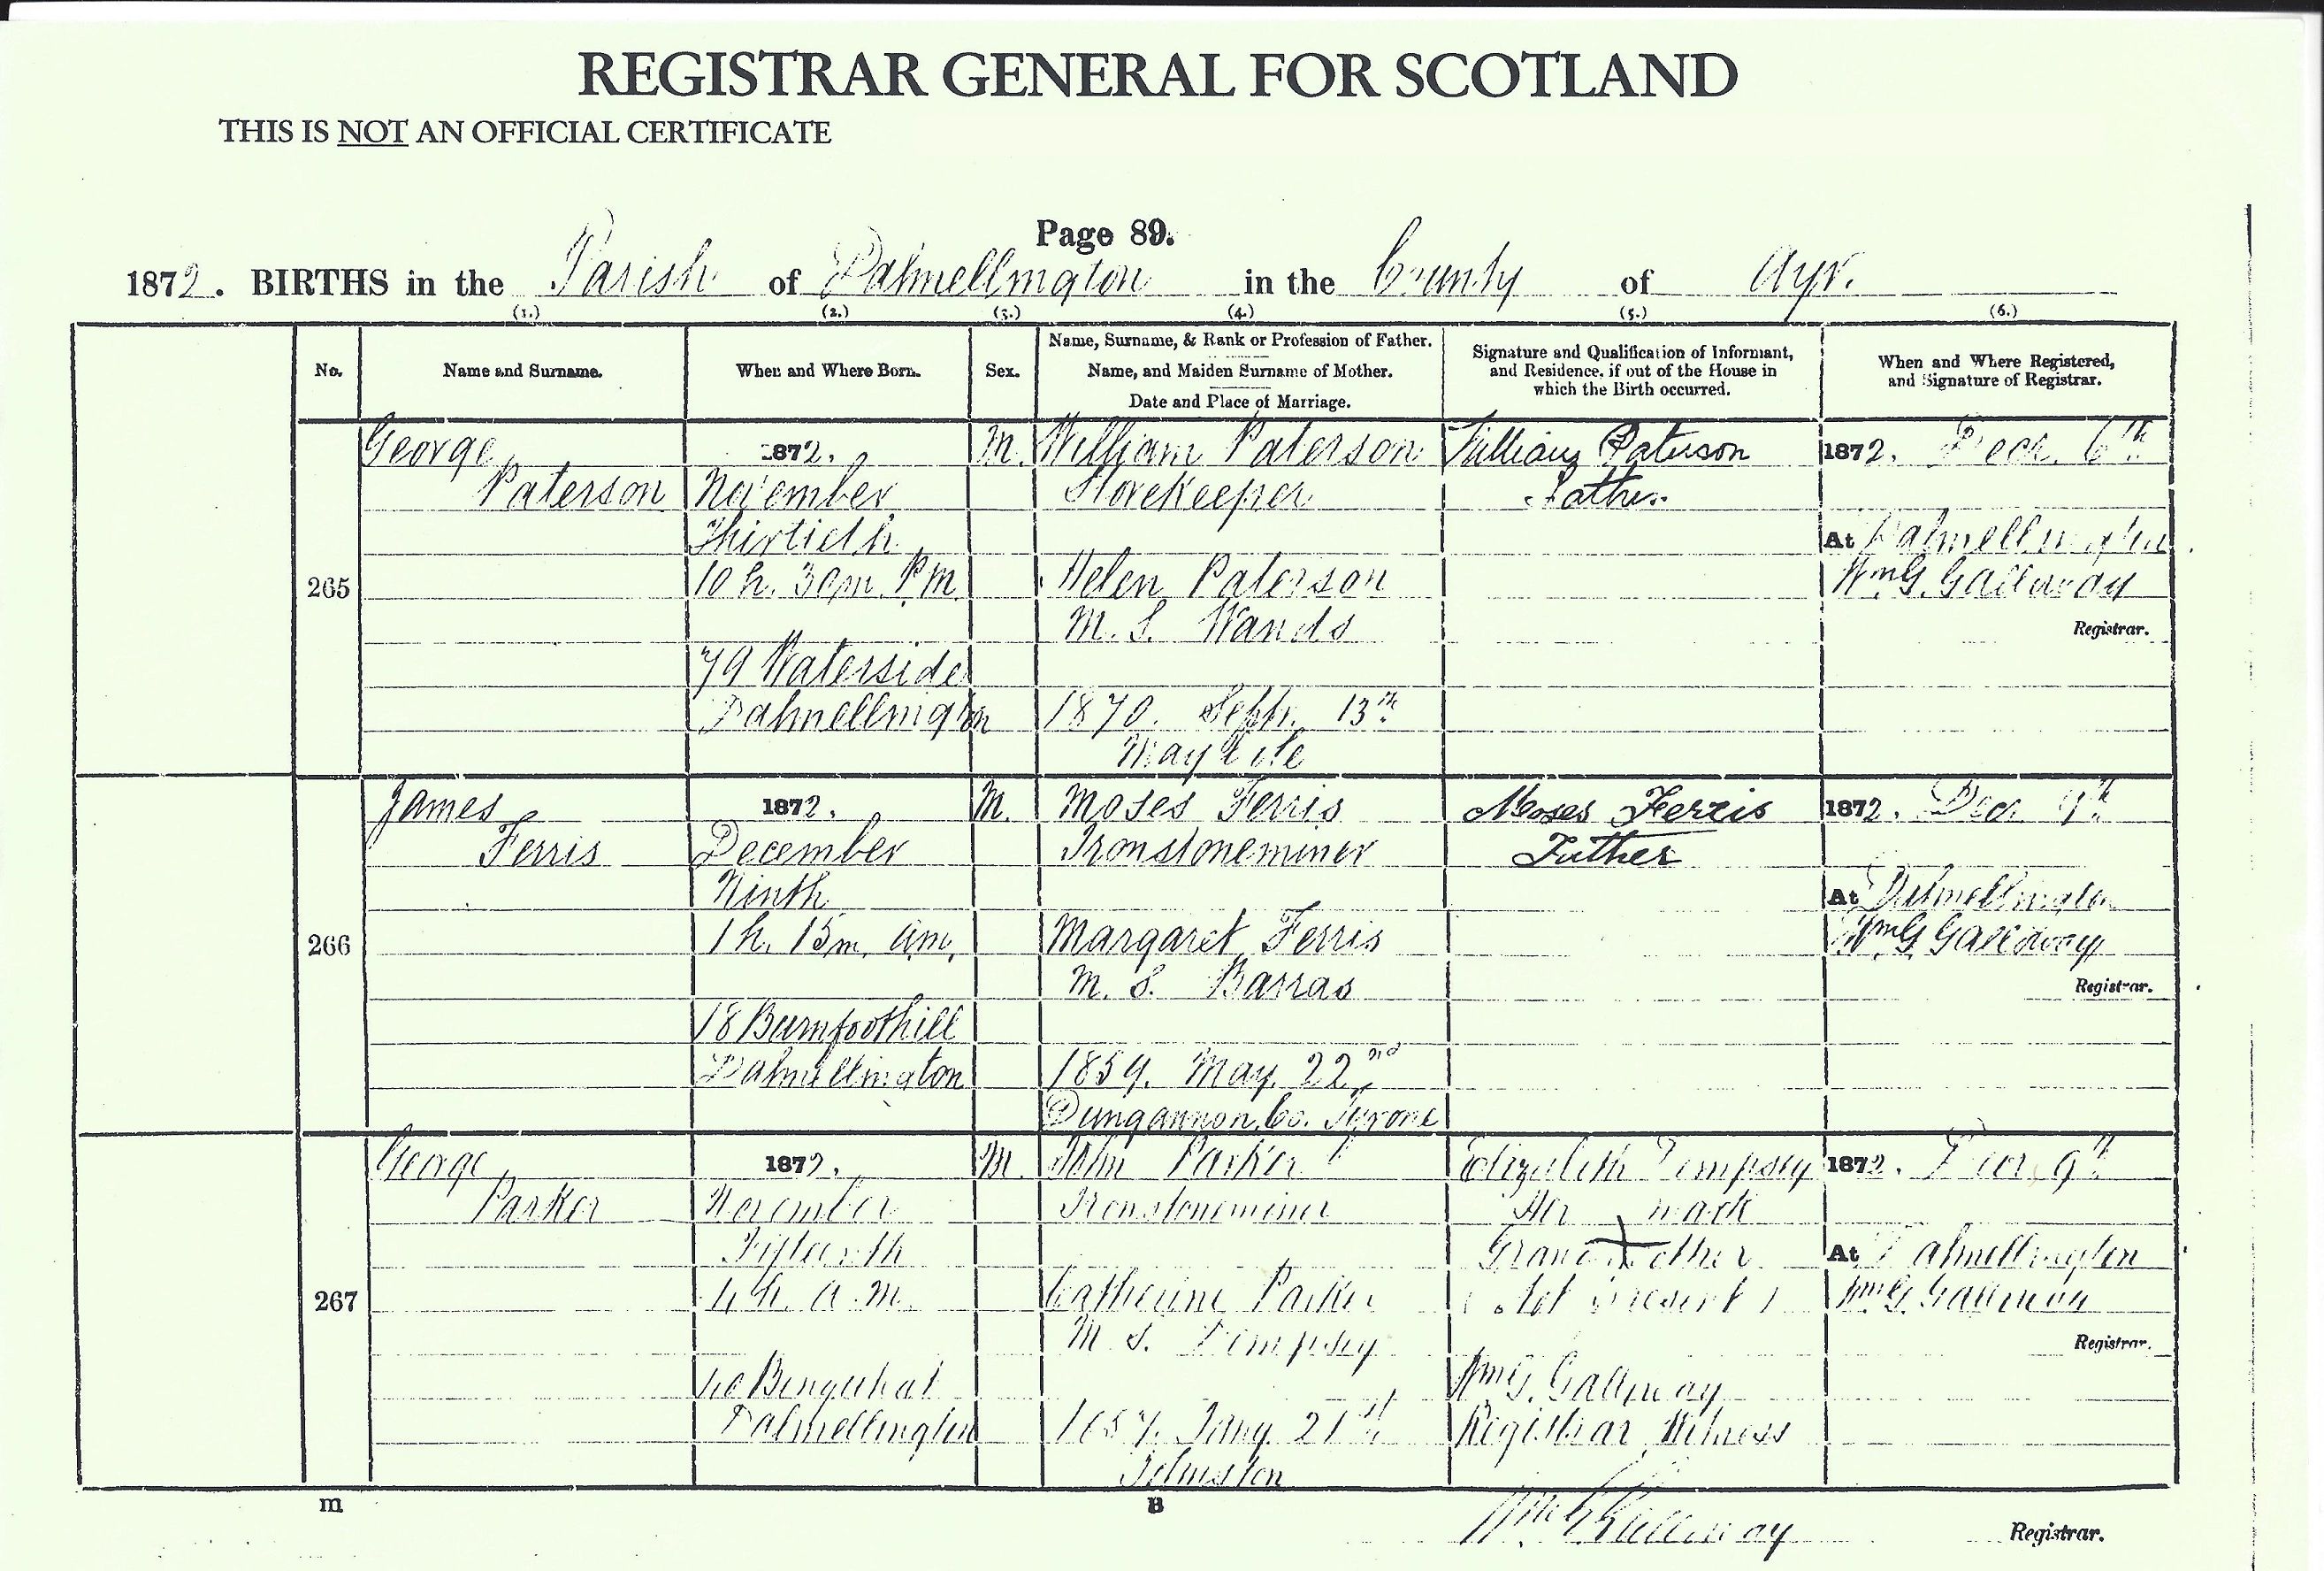 REGISTRAR GENERAL FOR SCOTLAND
THIS IS NOT AN OFFICIAL CERTIFICATE
Page 89.
1872. BIRTHS in the Parish of Dalmellington in the County of Ayr.
(1.) (2.) (3.) (4.) (5.) (6.)
No.
Name and Surname.
When and Where Born.
Sex.
Name, Surname, & Rank or Profession of Father.
Name, and Maiden Surname of Mother.
Date and Place of Marriage.
Signature and Qualification of Informant,
and Residence, if out of the House in
which the Birth occurred.
When and Where Registered,
and Signature of Registrar.
265
George
Paterson
1872.
November
Thirtieth
10 h. 30m. P.M.
79 Waterside
Dalmellington
M.
William Paterson
Storekeeper
Helen Paterson
M. S. Wands
1870. Septr. 13th
Maybole
William Paterson
Father
1872. Decr. 6th
At Dalmellington
Wm. G. Galloway
Registrar.
266
James
Ferris
1872.
December
Ninth
1 h. 15m. am.
18 Burnfoothill
Dalmellington
M.
Moses Ferris
Ironstoneminer
Margaret Ferris
M. S. Barras
1859. May. 22nd
Dungannon, Co. Tyrone
Moses Ferris
Father
1872. Decr. 9th
At Dalmellington
Wm. G. Galloway
Registrar.
267
George
Parker
1872.
November
Fifteenth
4 h. a.m.
Benquhat
Dalmellington
M.
John Parker
Ironstoneminer
Catherine Parker
M. S. Dempsey
Jany. 21st
Johnston
Elizabeth Dempsey
Her mark
X
Grandmother
(Not present)
Wm. G. Galloway
Registrar, Witness
1872. Decr. 9th
At Dalmellington
Wm. G. Galloway
Registrar.
m
B
Wm. G. Galloway Registrar.